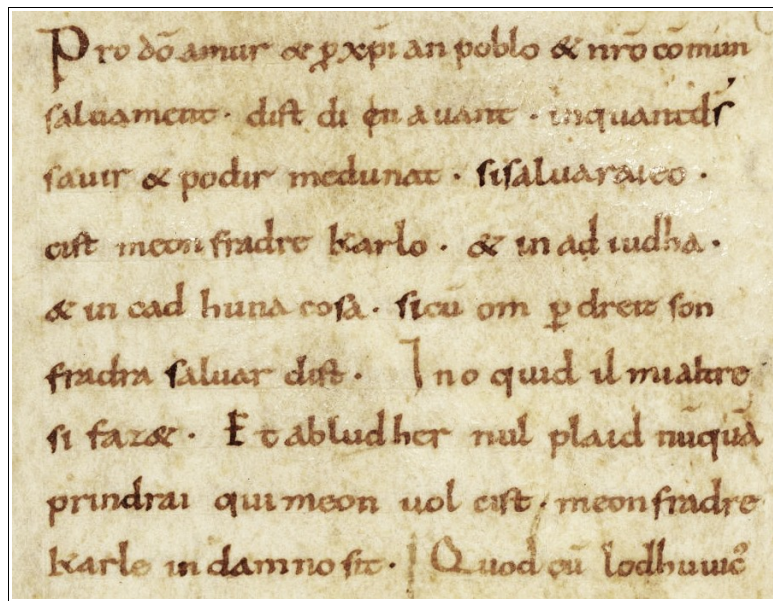 Pro dō amur & ꝑ xp̄ian poblo & nr̄o cōmun
saluament · dist di en auant · inquantd̄s
sauir & podir medunat · sisaluaraieo ·
cist meon fradre karlo · & in ad iudha ·
& in cad huna cosa · sicū om ꝑ dreit son
fradra saluar dist · Ino quid il mialtre
si faz& · Et abludher nul plaid nūquā
prindrai qui meon uol cist · meonfradre
karle in damno sit · Quod cū lodhuuic᷒